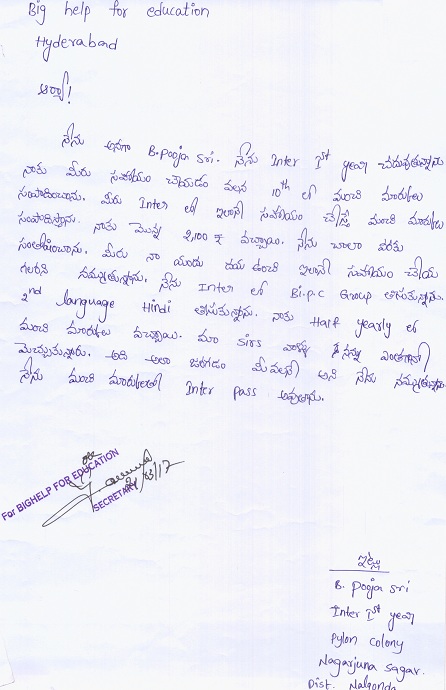 Big help for education
Hyderabad
ఆర్యా!
నేను అనగా B.pooja sri. నేను Inter Ist year చదువుతున్నాను
నాకు మీరు సహాయం చేయడం వలన 10th లో మంచి మార్కులు
సంపాదించాను. మీరు Inter లో ఇలానే సహాయం చేస్తే మంచి మార్కులు
సంపాదిస్తాను. నాకు మొన్న 2,100 ₹ వచ్చాయి. నేను చాలా వరకు
సంతోషించాను. మీరు నా యందు దయ ఉంచి ఇలానే సహాయం చేయ
గలరని నమ్ముతున్నాను. నేను Inter లో Bi.p.c Group తీసుకున్నాను.
2nd language Hindi తీసుకున్నాను. నాకు Half yearly లో
మంచి మార్కులు వచ్చాయి. మా sirs వాళ్ళు నన్ను ఎంతగానో
మెచ్చుకున్నారు. అది అలా జరగడం మీ వలనే అని నేను నమ్ముతున్నాను
నేను మంచి మార్కులతో Inter pass అవుతాను.
For BIGHELP FOR EDUCATION
SECRETARY
ఇట్లు
B. pooja sri
Inter Ist year
pylon colony
Nagarjuna sagar.
Dist. Nalgonda